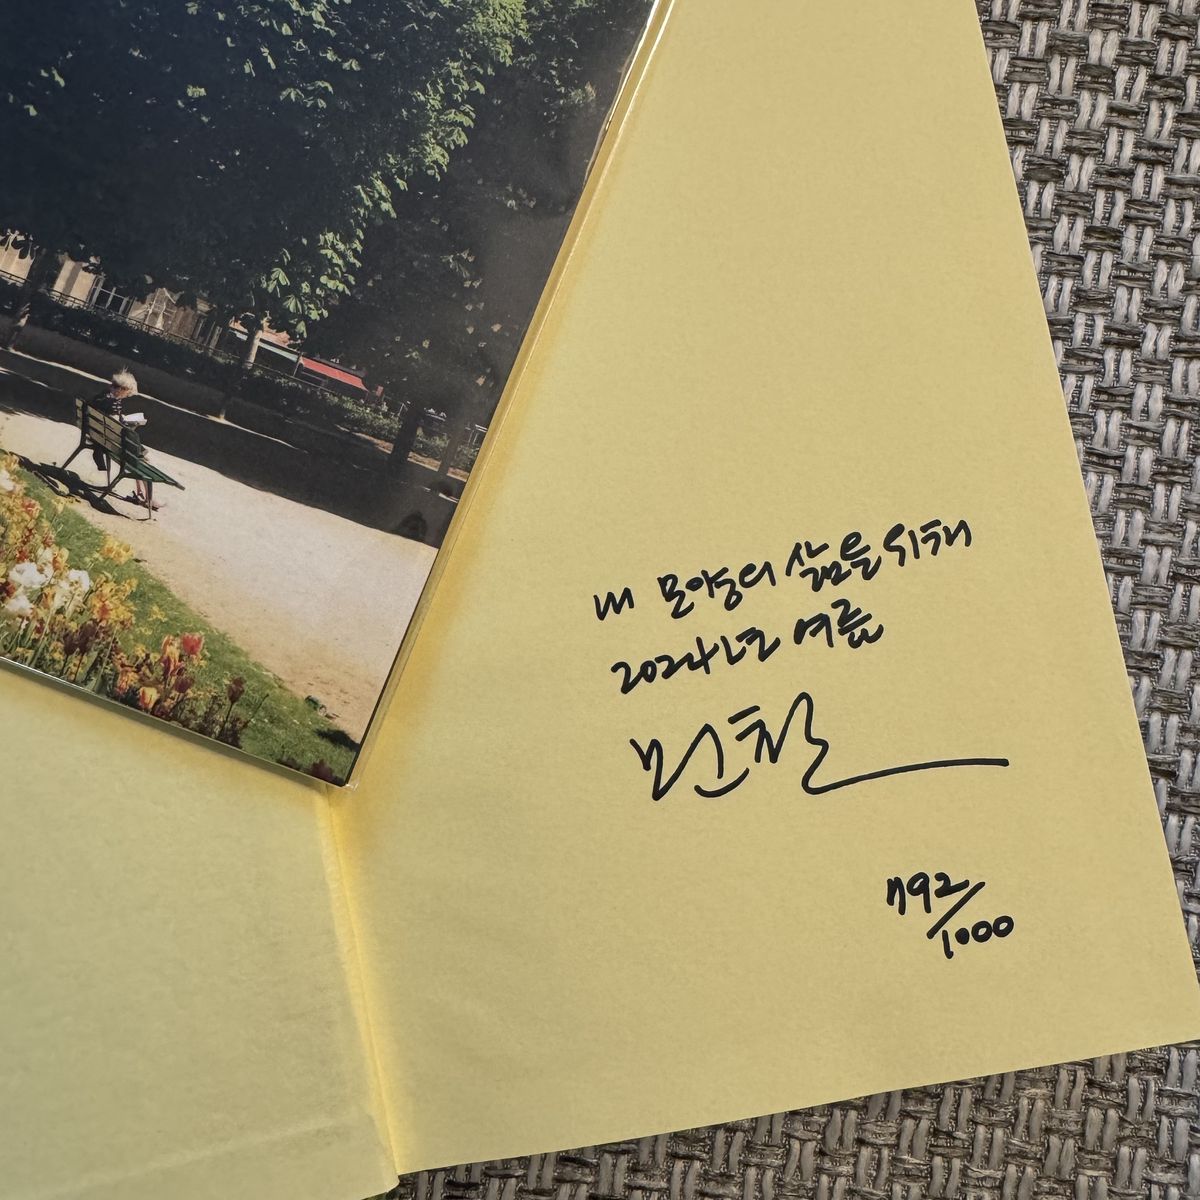 내 모양의 삶을 위해
2024년 여름
민철
792/1000